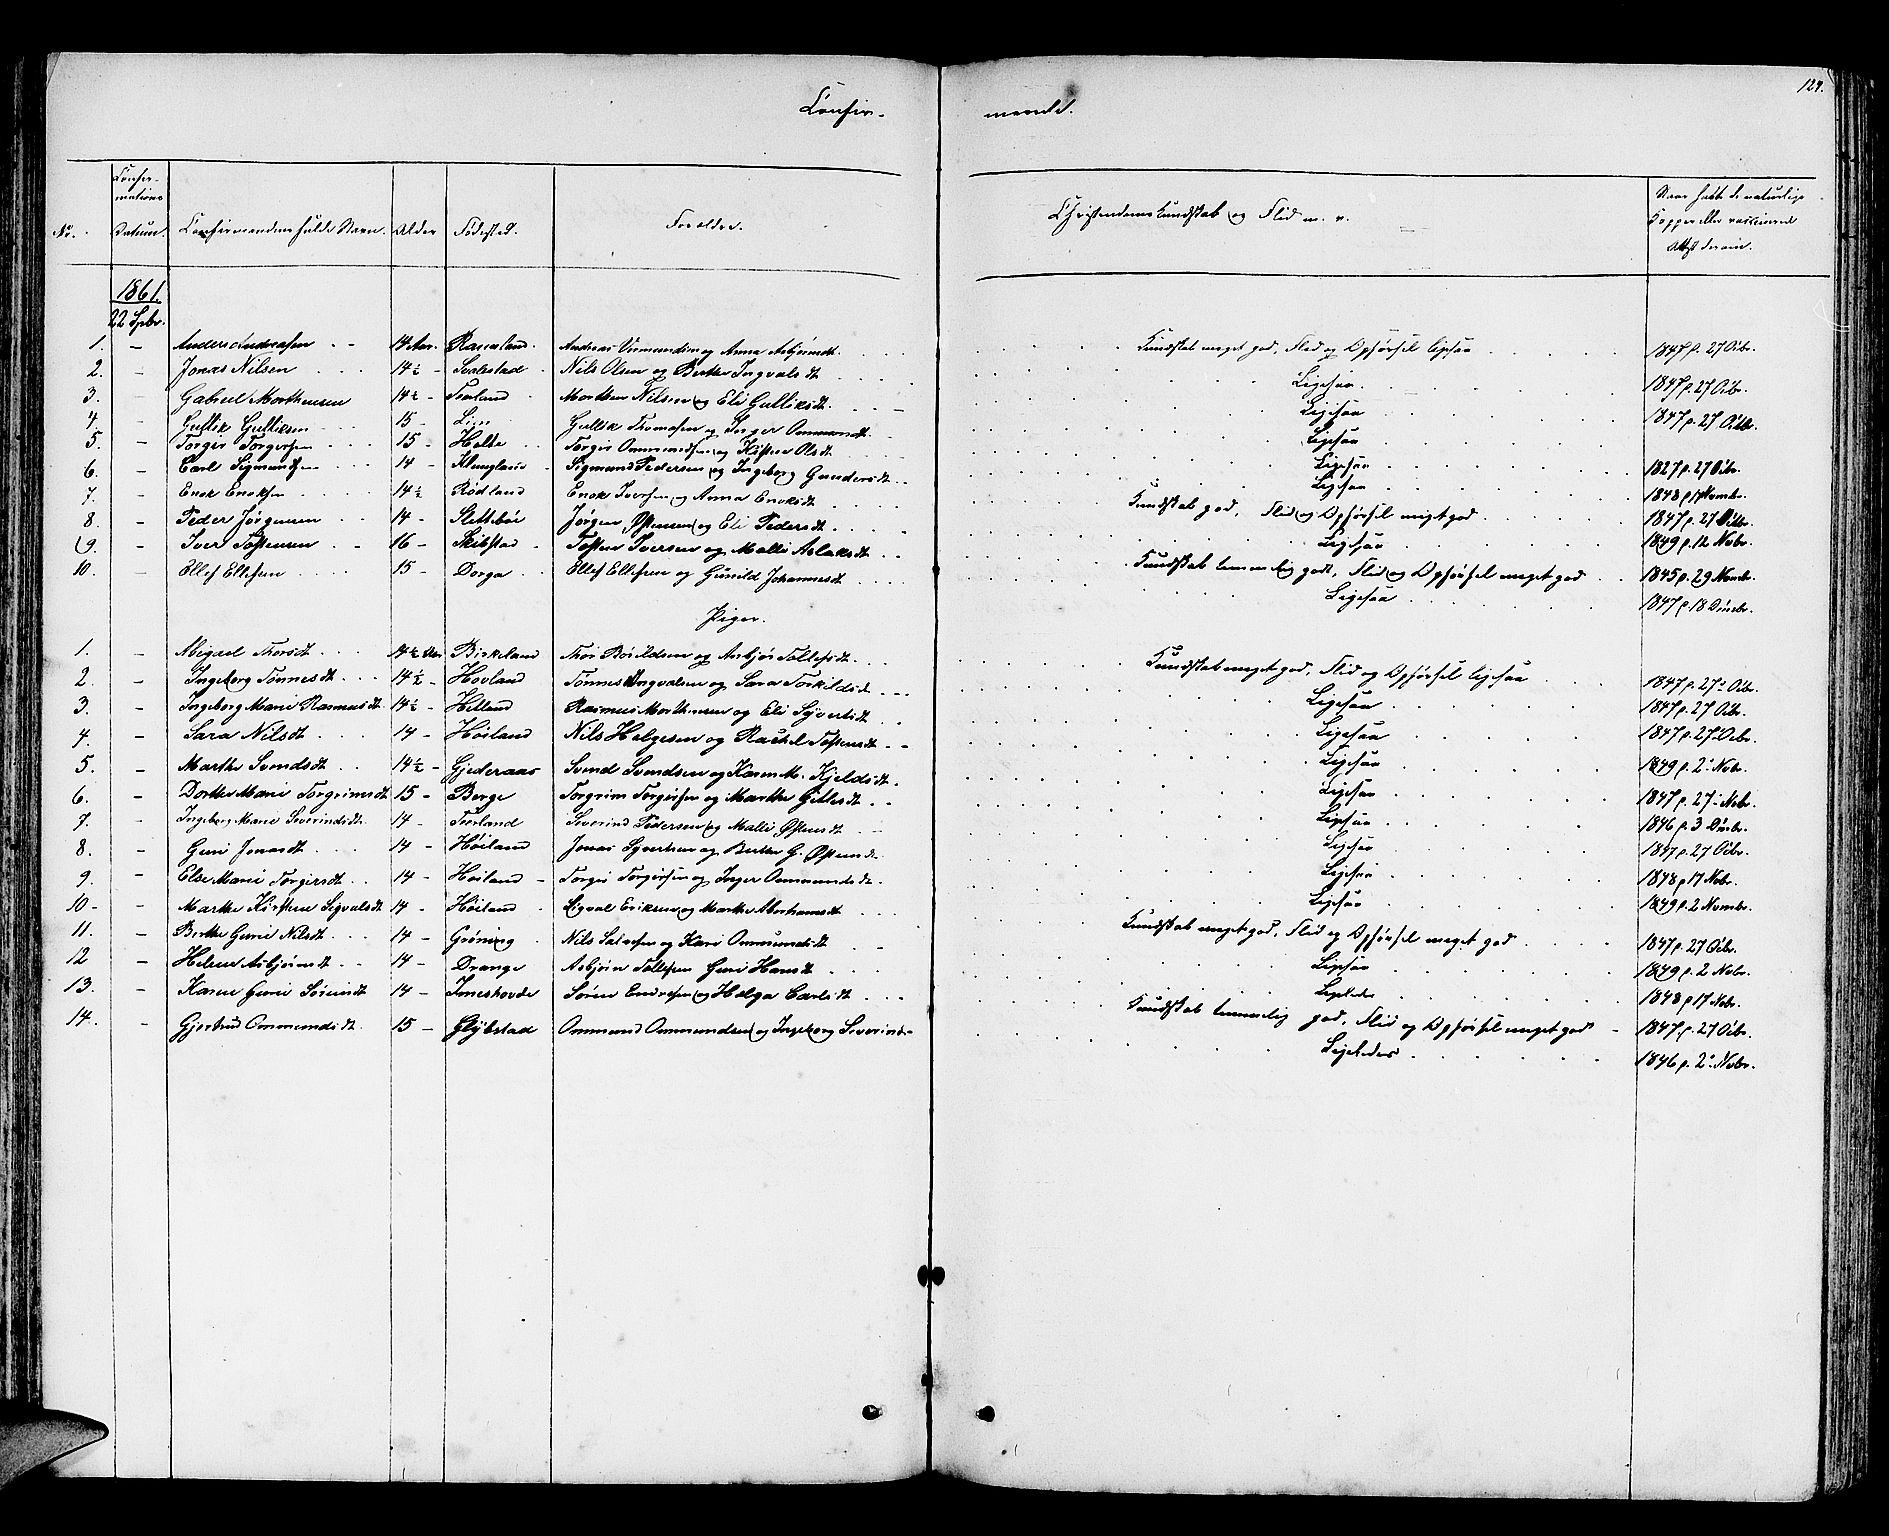 Confir- merede. 124.
No. Confirmations Datum. Confirmandens fulde Navn. Alder Fødested. Forældre. Christendoms Kundskab og Flid m. v. Naar havt de naturlige Kopper eller vaccinerede Attest derom.
1861.
22 Spbr.
1. – Anders Andreasen 14 Aar. Rasmus og Anna Asbjørnsdt. Kundskab meget god, Flid og Opførsel ligesaa 1847 p. 27 Octbr.
2. – Jonas Nilsen 14½ – Svalestad Nils Olsen og Berthe Ingvalsdt Ligesaa. 1847 p. 27 Octbr.
3. – Gabriel Morthensen 14½ – Morthen Nilsen og Eli Gulliksdt. Ligesaa 1847 p. 27 Octbr.
4. – Gullik Gulliksen 15 – Lien Gullik Thomasen og Inger Ommundt. Ligesaa
5. – Torger Torgersen 15 – Holte Torger Ommundsen og Kisten Olsdt Ligesaa 1827 p. 27 Octbr.
6. – Carl Sigmundsen 14 – Klungland Sigmund Pedersen og Ingeborg Gundersdt Ligesaa 1848 p 17 Novmbr.
7. – Enok Enoksen 14½ – Rødland Enok Iversen og Anna Enoksdt Kundskab god, Flid og Opførsel meget god 1847 p. 27 Octbr.
8. – Peder Jørgensen 14 – Slettebø Jørgen Østensen og Eli Pedersdt Ligesaa 1849 p. 12 Nvbr.
9. – Iver Tostensen 16 – Skibstad Tosten Iversen og Malli Aslaksdt Kundskab temmelig godt, Flid og Opførsel meget god 1845 p. 29 Novmbr.
10. – Ellef Ellefsen 15 – Dorga Ellef Ellefsen og Gunild Johannesdt Ligesaa 1847 p. 18 Decmbr.
Piger.
1. – Abigael Thorsdt 14½ Aar Birkeland Thor Boieldsen og Asbjør Tollefsdt. Kundskab meget god, Flid og Opførsel ligesaa 1847 p. 27 Octbr.
2. – Ingeborg Tønnesdt 14½ – Hovland Tønnes Ingvalsen og Sara Torkildsdt Ligesaa 1847 p. 27 Octbr.
3. – Ingeborg Marie Rasmusdt 14½ – Helland Rasmus Morthensen og Eli Syvertsdt Ligesaa 1847 p. 27 Octbr.
4. – Sara Nilsdt 14 – Høiland Nils Helgesen og Rachel Tostensdt Ligesaa 1849 p. 2 Nvbr.
5. – Marthe Svendsdt 14½ – Gjederaas Svend Svendsen og Karen M. Kjeldsdt. Ligesaa 1847 p. 27 Nvbr.
6. – Dorthe Marie Torgrimsdt 15 – Berge Torgrim Torgersen og Marthe Gitlesdt Ligesaa 1846 p. 3 Decbr.
7. – Ingeborg Marie Severindsdt 14 – Severind Pedersen og Malli Østensdt Ligesaa 1847 p. 27 Octbr.
8. – Guri Jonasdt 14 – Høiland Jonas Syvertsen og Berthe G. Østensdt Ligesaa 1848 p 17 Nvbr.
9. – Else Marie Torgersdt 14 – Høiland – Torger Torgersen og Inger Ommundsdt. Ligesaa 1849 p. 2 Novmbr.
10 – – Marthe Kirstine Sigvalsdt 14 – Høiland Sigval Eriksen og Marthe Abrahamsdt Kundskab meget god, Flid og Opførsel meget god 1847 p. 27 Octbr.
11. – Berthe Gurie Nilsdt 14 – Grøning Nils Salvesen og Kari Ommundsdt Ligesaa 1849 p. 2 Nvbr.
12 – Helene Asbjørnsdt 14 – Drange Asbjørn Tollefsen Guri Hansdt Ligeledes 1848 p 17 Nvbr.
13. – Karen Gurie Sørensdt 14 – Imeshovde Søren Endresen og Helga Carlsdt Kundskab temmelig god, Flid og Opførsel meget god 1847 p. 27 Octbr.
14. – Gjertrud Ommundsdt 15 – Glybstad Ommund Ommundsen og Ingeborg Severinds- Ligeledes 1846 p. 2 Nvbr.